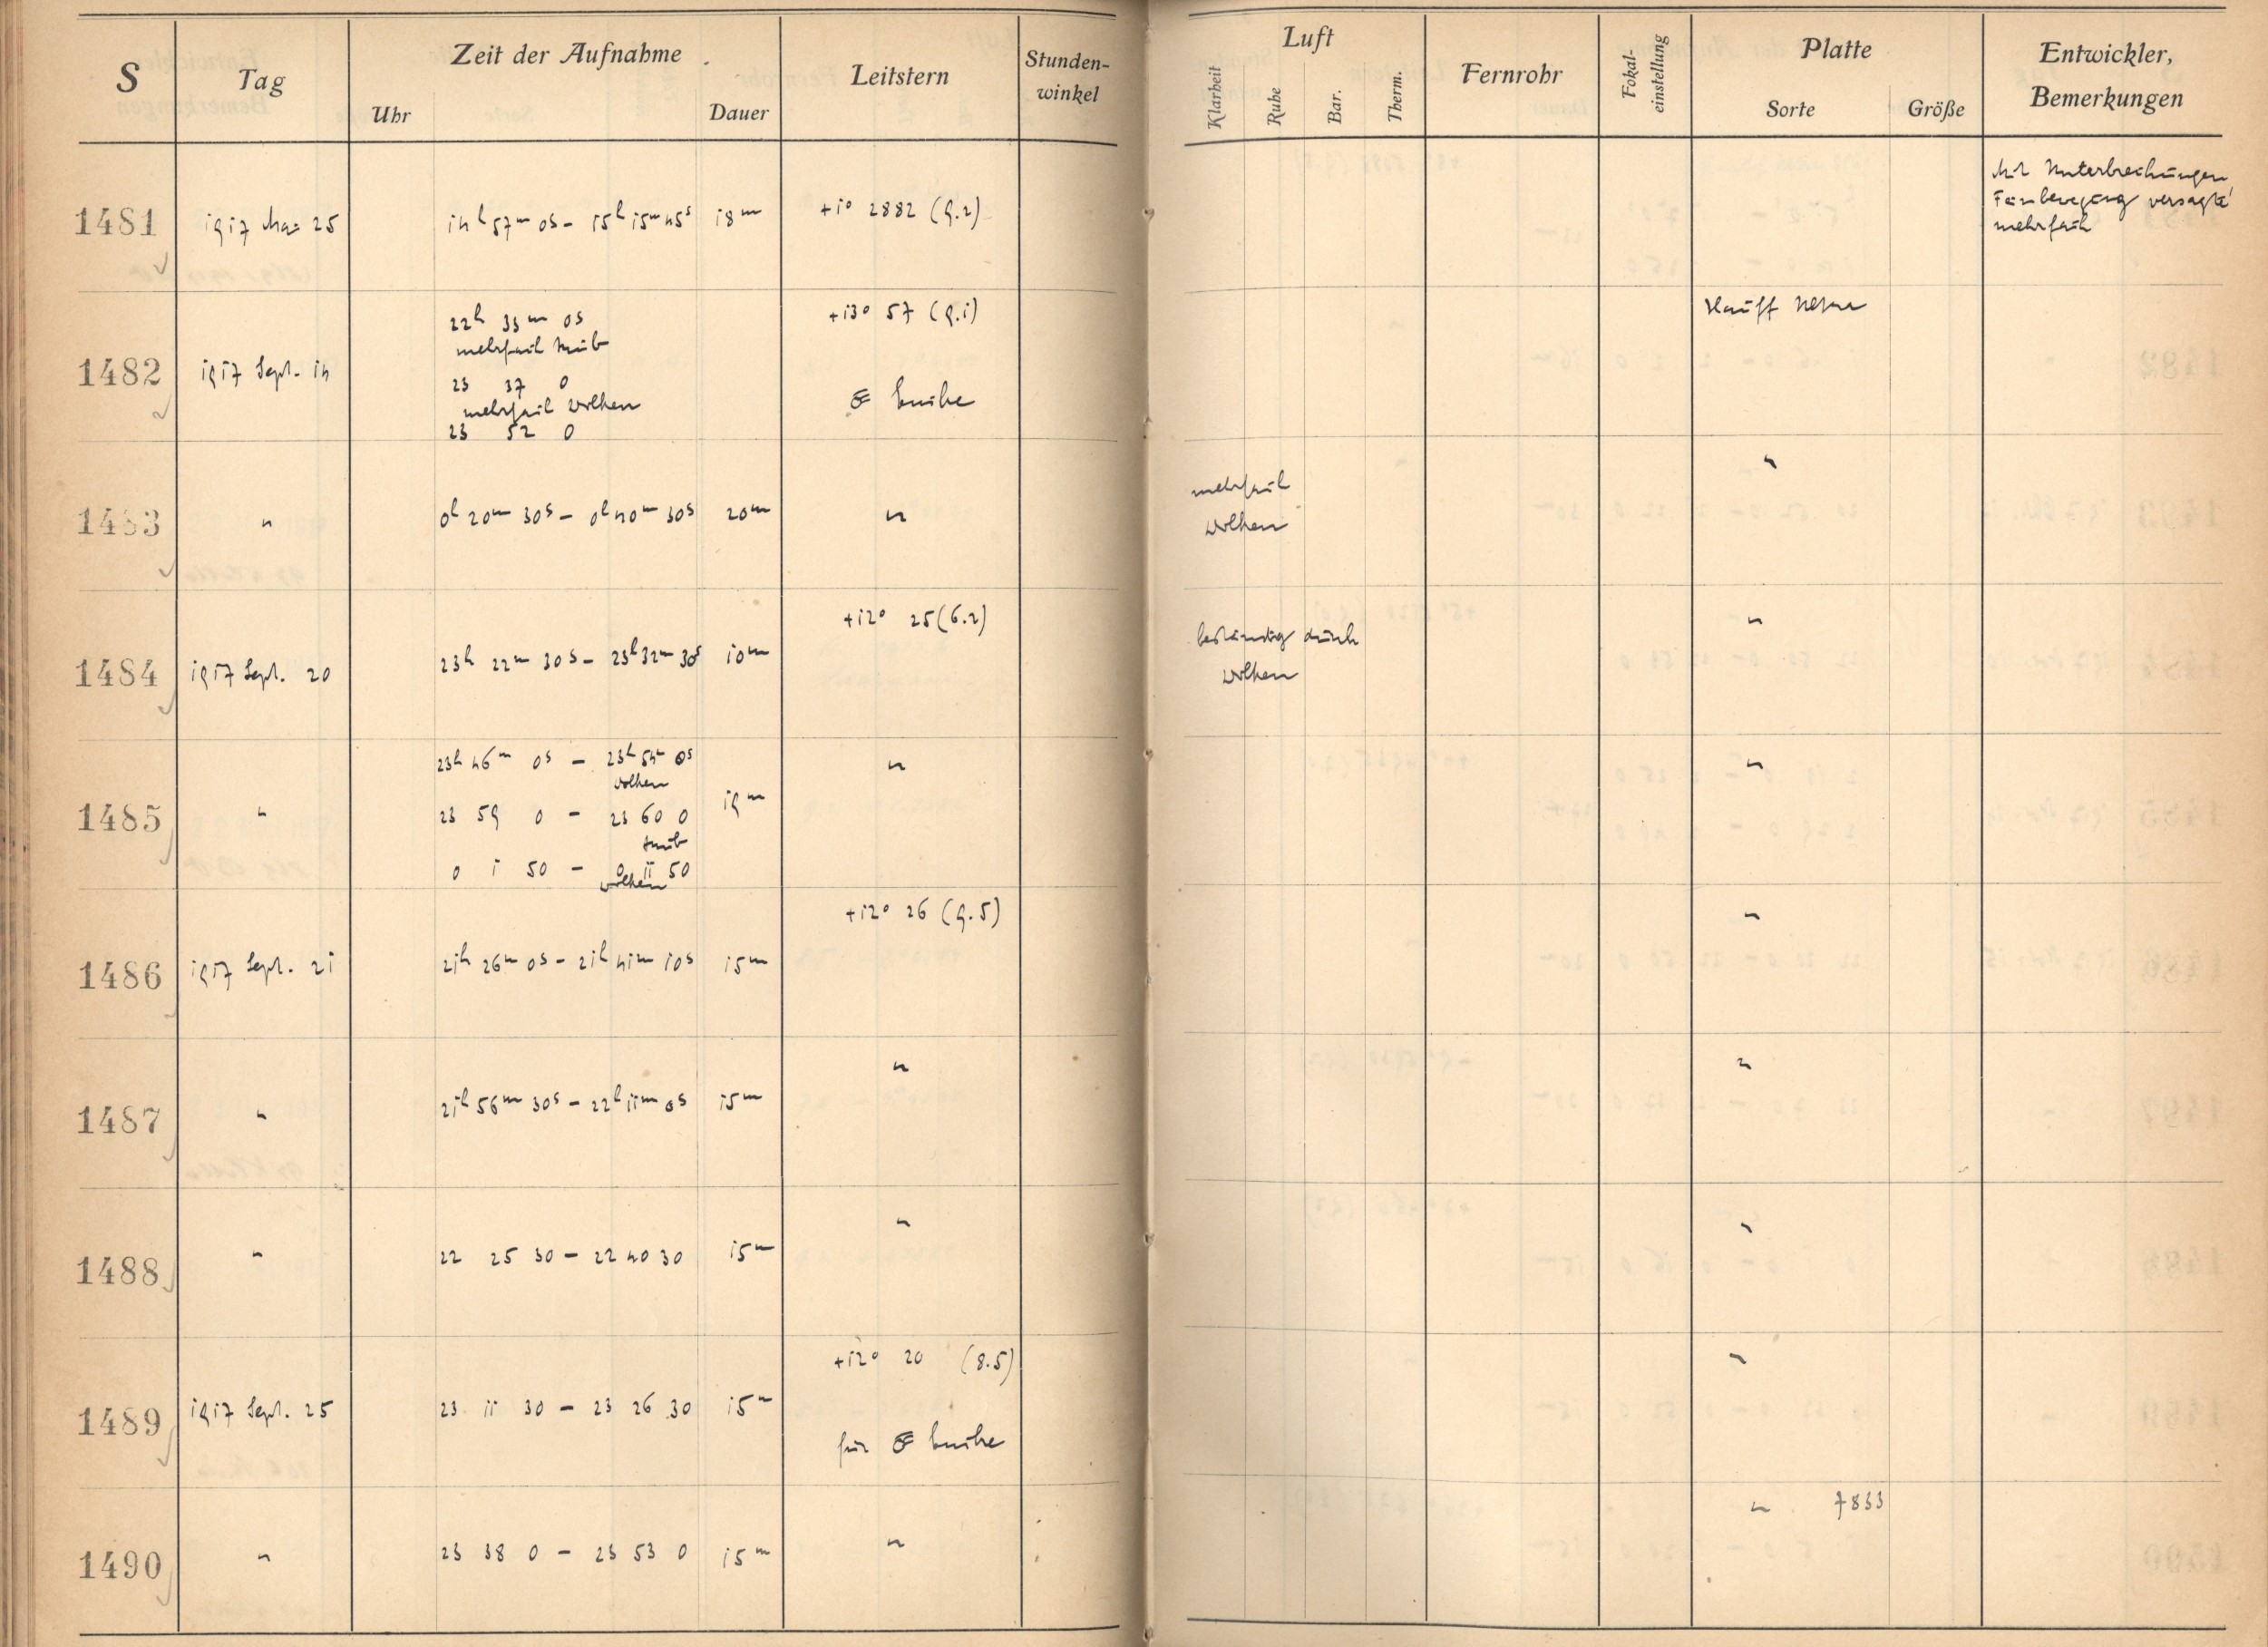 S Tag Zeit der Aufnahme Leitstern Stunden-winkel Luft Fernrohr Fokal-einstellung Platte Entwickler, Bemerkungen
Uhr Dauer Klarheit Ruhe Bar. Therm. Sorte Größe
1481 1917 Mai 25 14h 57m 0s – 15h 15m 45s 18m +1° 2882 (9.2) Mit Unterbrechungen
Feinbewegung versagte
mehrfach
1482 1917 Sept. 14 22h 33m 0s +13° 57 (9.1) Hauff
mehrfach trüb
23 37 0
mehrfach Wolken
23 52 0
1483 " 0h 20m 30s – 0h 40m 30s 20m " mehrfach "
Wolken
1484 1917 Sept. 20 23h 22m 30s – 23h 32m 30s 10m +12° 25 (6.2) beständig durch "
Wolken
1485 " 23h 46m 0s – 23h 54m 0s 19m " "
Wolken
23 59 0 – 23 60 0
trüb
0 1 50 – 0 11 50
Wolken
1486 1917 Sept. 21 21h 26m 0s – 21h 41m 10s 15m +12° 26 (9.5) "
1487 " 21h 56m 30s – 22h 11m 0s 15m " "
1488 " 22 25 30 – 22 40 30 15m " "
1489 1917 Sept. 25 23 11 30 – 23 26 30 15m +12° 20 (8.5) "
für
1490 " 23 38 0 – 23 53 0 15m " " 7833